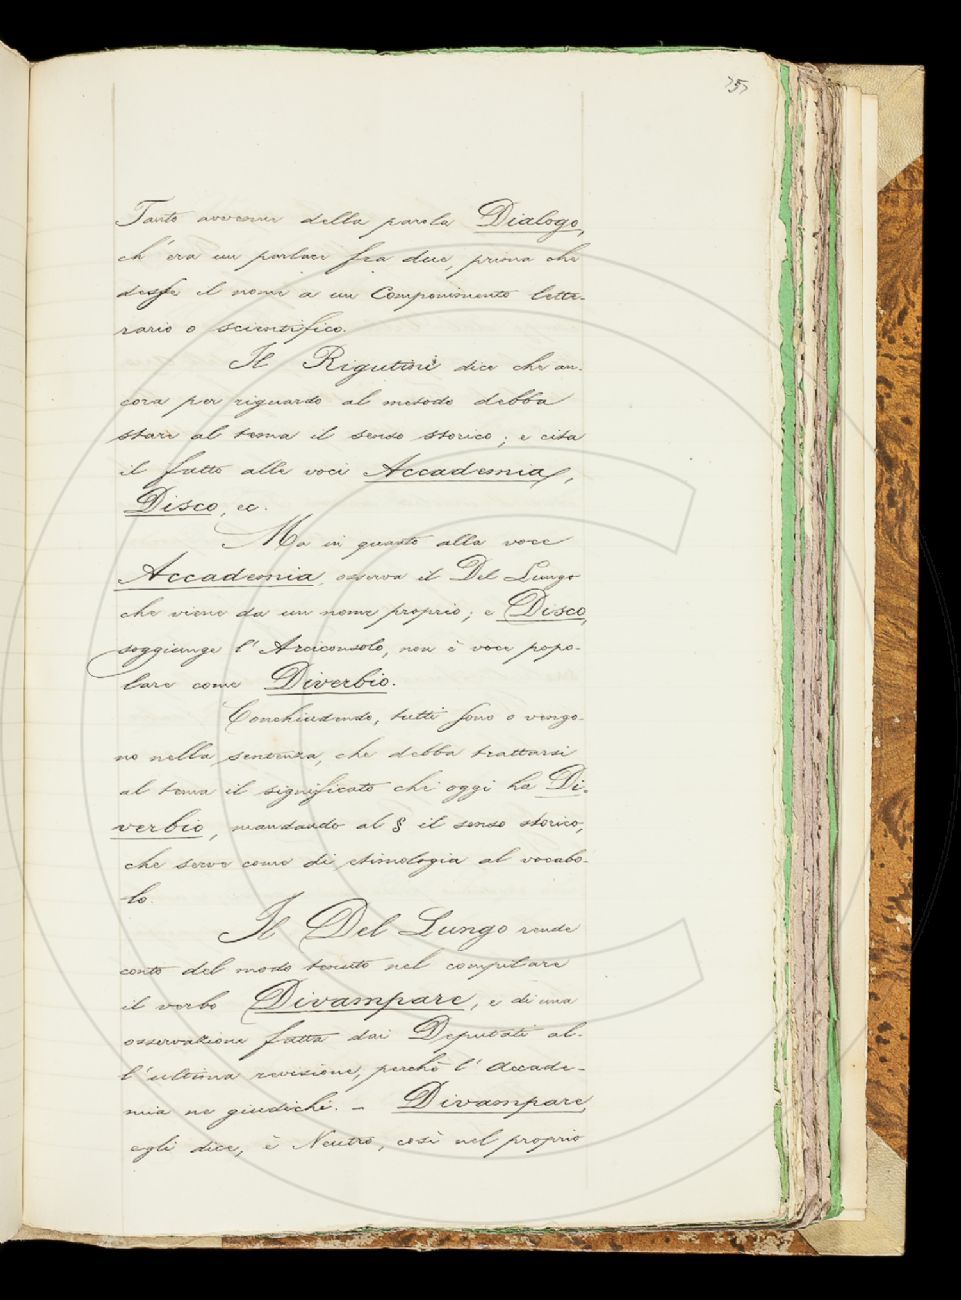 757
Tanto avvenne della parola Dialogo,
ch'era un parlare fra due, prima che
desse il nome a un Componimento lette-
rario o scientifico.
Il Rigutini dice che an-
cora per riguardo al metodo debba
stare al tema il senso storico; e cita
il fatto alle voci Accademia,
Disco, ec.
Ma in quanto alla voce
Accademia, osserva il Del Lungo
che viene da un nome proprio; e Disco,
soggiunge l'Arciconsolo, non è voce popo-
lare come Diverbio.
Conchiudendo, tutti sono o vengo-
no nella sentenza, che debba trattarsi
al tema il significato che oggi ha Di-
verbio, mandando al § il senso storico,
che serve come di etimologia al vocabo-
lo.
Il Del Lungo rende
conto del modo tenuto nel compilare
il verbo Divampare, e di una
osservazione fatta dai Deputati al-
l'ultima revisione, perchè l'Accade-
mia ne giudichi. - Divampare,
egli dice, è Neutro, così nel proprio